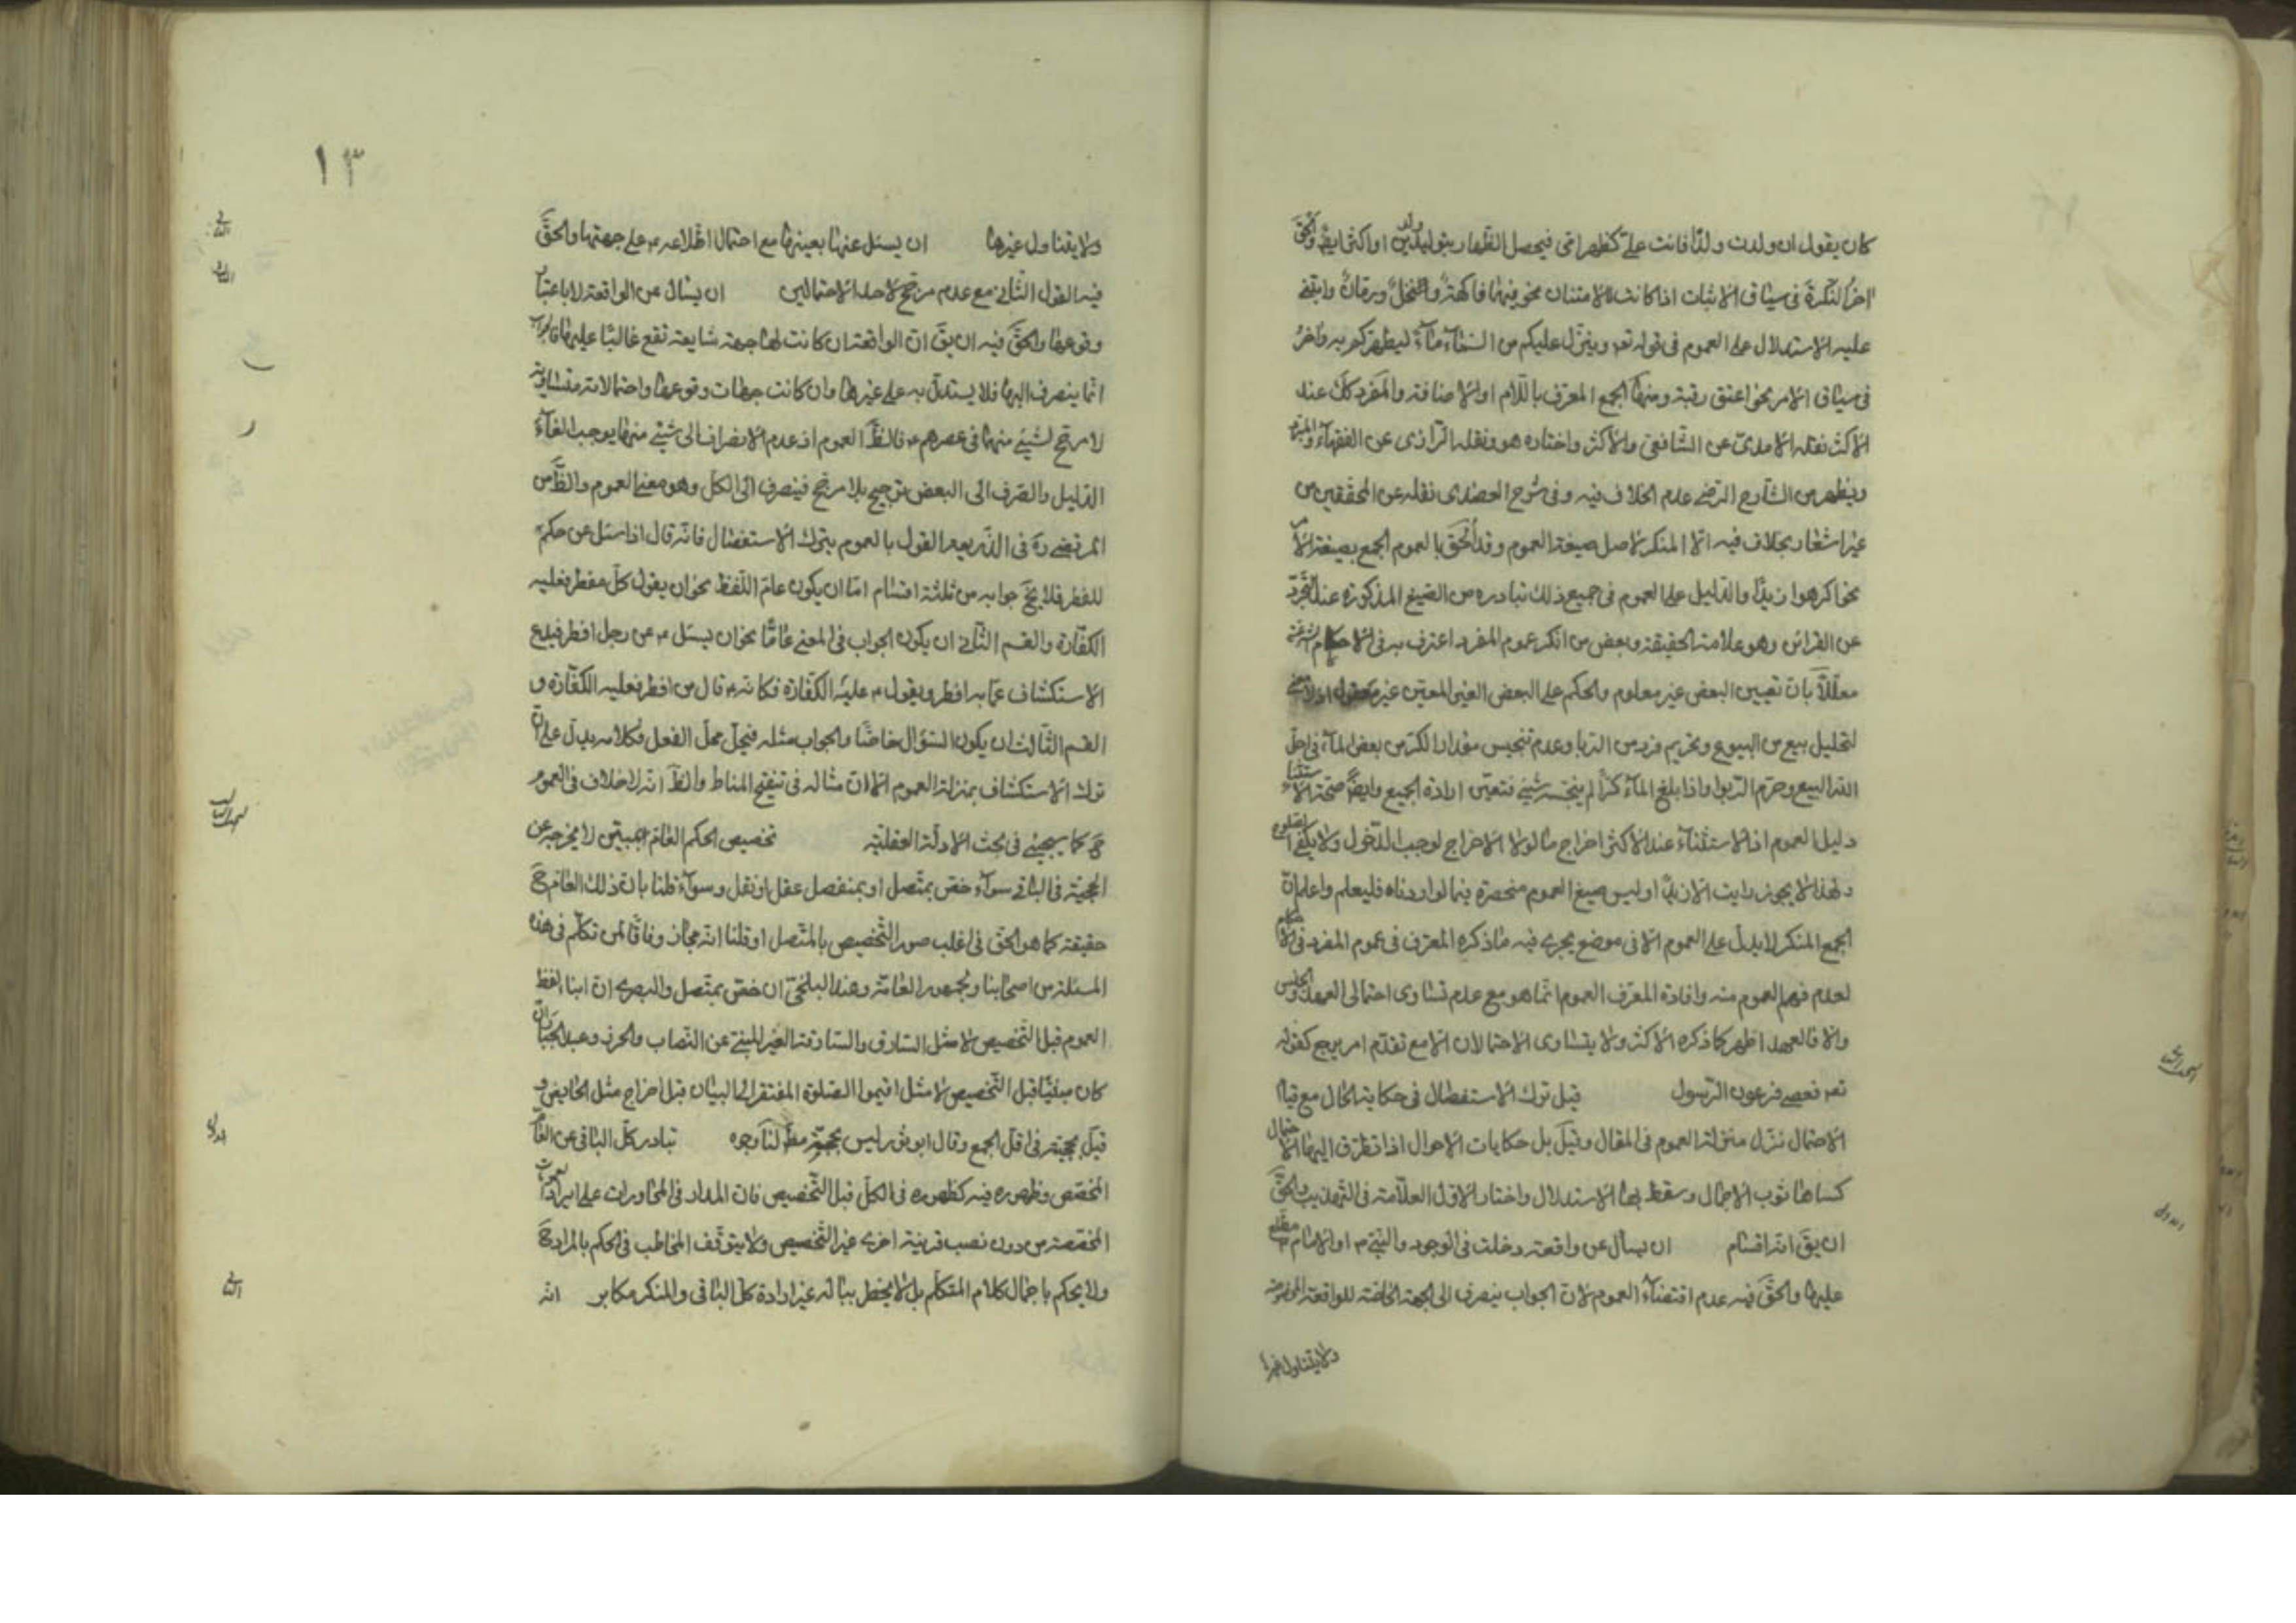 كان يقول ان ولدت ولدًا فانت علىّ كظهر امّى فيحصل الظهار بتوليد ولدين او اكثر ايضً والحقّ
اخرُ النكرةَ فى سياق الاثبات اذا كانت للامتنان نحو فيهما فاكهةٌ ونخلٌ ورمّانٌ وابتنى
عليه الاستدلال على العموم فى قوله تعـ وينزّل عليكم من السّماءِ ماءً ليطهّركم به واخرُ
فى سياق الامر نحو اعتق رقبة ومنها الجمع المعرف باللّام او الاضافة والمفرد ككَ عند
الاكثر نقله الامدىّ عن الشّافعى والاكثر واختاره هو ونقله الرّازى عن الفقهآء والمبرّد
ويظهر من الشّارح الرّضى عدم الخلاف فيه وفى شرح العضدى نقله عن المحقّقين من
غير اشعار بخلاف فيه الّا المنكر لاصل صيغة العموم وقد اُلحَق بالعموم الجمع بصيغة الامر
نحو اكرهوا زيدًا والدّليل على العموم فى جميع ذلك تبادره من الصّيغ المذكورة عند التجرّد
عن القرائن وهو علامة الحقيقة وبعض من انكر عموم المفرد اعترف به فى الاحكام الشرعيّة
معلّلًا بانّ تعيين البعض غير معلوم والحكم على البعض الغير المعيّن غير معقول اذ لا معنى
لتحليل بيع من البيوع وتحريم فرد من الرّبا وعدم تنجيس مقدار الكرّ من بعض الماء فى احلّ
اللّه البيع وحرّم الرّبوا واذا بلغ المآء كرًّا لم ينجّسه شئ فتعيّن ارادة الجميع وايضً صحّة الاستثناء
دليل العموم اذ الاستثنآء عند الاكثر اخراج ما لولا الاخراج لوجب الدّخول ولا يكفى الصلوح
ولهذا لا يجوز رايت الّا زيدًا وليس صيغ العموم منحصرة فيما اوردناه فليعلم واعلم انّ
الجمع المنكر لا يدلّ على العموم الّا فى موضع يجرى فيه ما ذكره المعترف فى عموم المفرد فى الاحكام
لعدم فهم العموم منه وافادة المعرّف العموم انّما هو مع عدم تساوى احتمالى العهد والجنس
والّا فالعهد اظهر كما ذكره الاكثر ولا يتساوى الاحتمالان الّا مع تقدّم امر يرجع كقوله
تعـ فعصى فرعون الرّسول قيل ترك الاستفصال فى حكاية الحال مع قيام
الاحتمال ننزل منزلة العموم فى المقال وقيل بل حكايات الاحوال اذا تطرّق اليها الاحتمال
كساها ثوب الاجمال وسقط بها الاستدلال واختار الاوّل العلّامة فى التّهذيب والحقّ
ان يقَ انّه اقسام ان يسال عن واقعة دخلت فى الوجود والنّبىّ ص او الامام ع مطّلع
عليها والحقّ فيه عدم اقتضآء العموم لانّ الجواب ينصرف الى الجهة الخاصّة للواقعة المخصوصة
ولا يتناول غيرها
١٣
ولا يتناول غيرها ان يسئل عنها بعينها مع احتمال اطّلاعه ع على جهتها والحقّ
فيه القول الثّانى مع عدم مرجّح لاحد الاحتمالين ان يسال عن الواقعة لا باعتبار
وقوعها والحقّ فيه ان يقَ انّ الواقعة ان كانت لها جهة شايعة تقع غالبًا عليها فالجواب
انّما ينصرف اليها فلا يستدلّ به على غيرها وان كانت جهات وقوعها واحتمالاته متساوية
لا مرجّح لشئ منها فى عصرهم ع فالظّ العموم اذ عدم الانصراف الى شئ منها يوجب الغآء
الدّليل والصّرف الى البعض ترجيح بلا مرجّح فينصرف الى الكلّ وهو معنى العموم والظّ من
المرتضى ره فى الذّريعة القول بالعموم بترك الاستفصال فانّه قال اذا سئل عن حكم
للفطر فلا يخَ جوابه من ثلثة اقسام امّا ان يكون عامّ اللّفظ نحو ان يقول كلّ مفطر فعليه
الكفّارة والقسم الثّانى ان يكون الجواب فى المعنى عامًّا نحو ان يسئل ع عن رجل افطر فيدع
الاستكشاف عمّا به افطر ويقول ع عليه الكفّارة فكانّه ع قال من افطر فعليه الكفّارة و
القسم الثّالث ان يكون السّؤال خاصًّا والجواب مثله فيحلّ محلّ الفعل وكلامه يدلّ على انّ
ترك الاستكشاف بمنزلة العموم الّا انّ مثاله فى تنقيح المناط والظّ انّه لا خلاف فى العموم
حَ كما سيجئ فى بحث الادلّة العقليّة تخصيص الحكم العامّ بمبيّن لا يخرجه عن
الحجّيّة فى الباقى سوآء خصّ بمتّصل او بمنفصل عقل او نقل وسوآء قلنا بانّ ذلك العامّ حَ
حقيقة كما هو الحقّ فى اغلب صور التّخصيص بالمتّصل او قلنا انّه مجاز وفاقًا لمن تكلّم فى هذه
المسئلة من اصحابنا ولجمهور العامّة وعند البلخىّ ان خصّ بمتّصل والبصرى ان انبا لفظ
العموم قبل التّخصيص لا مثل السّارق والسّارقة الغير المنبئ عن النّصاب والحرز وعبد الجبّار ان
كان مبيّنًا قبل التّخصيص لا مثل اقيموا الصّلوة المفتقر الى البيان قبل اخراج مثل الحايض و
قيل بحجّيّته فى اقلّ الجمع وقال ابو ثور ليس بحجّة مطَ لنا وجوه تبادر كلّ الباقى عن العامّ
المخصّص وظهوره فيه كظهوره فى الكلّ قبل التّخصيص فانّ المدار فى المحاورات على ايراد العمومات
المخصّصة من دون نصب قرينة اخرى غير التّخصيص ولا يتوقّف المخاطب فى الحكم بالمراد حَ
ولا يحكم باجمال كلام المتكلّم بل لا يخطر بباله غير ارادة كلّ الباقى والمنكر مكابر انّه